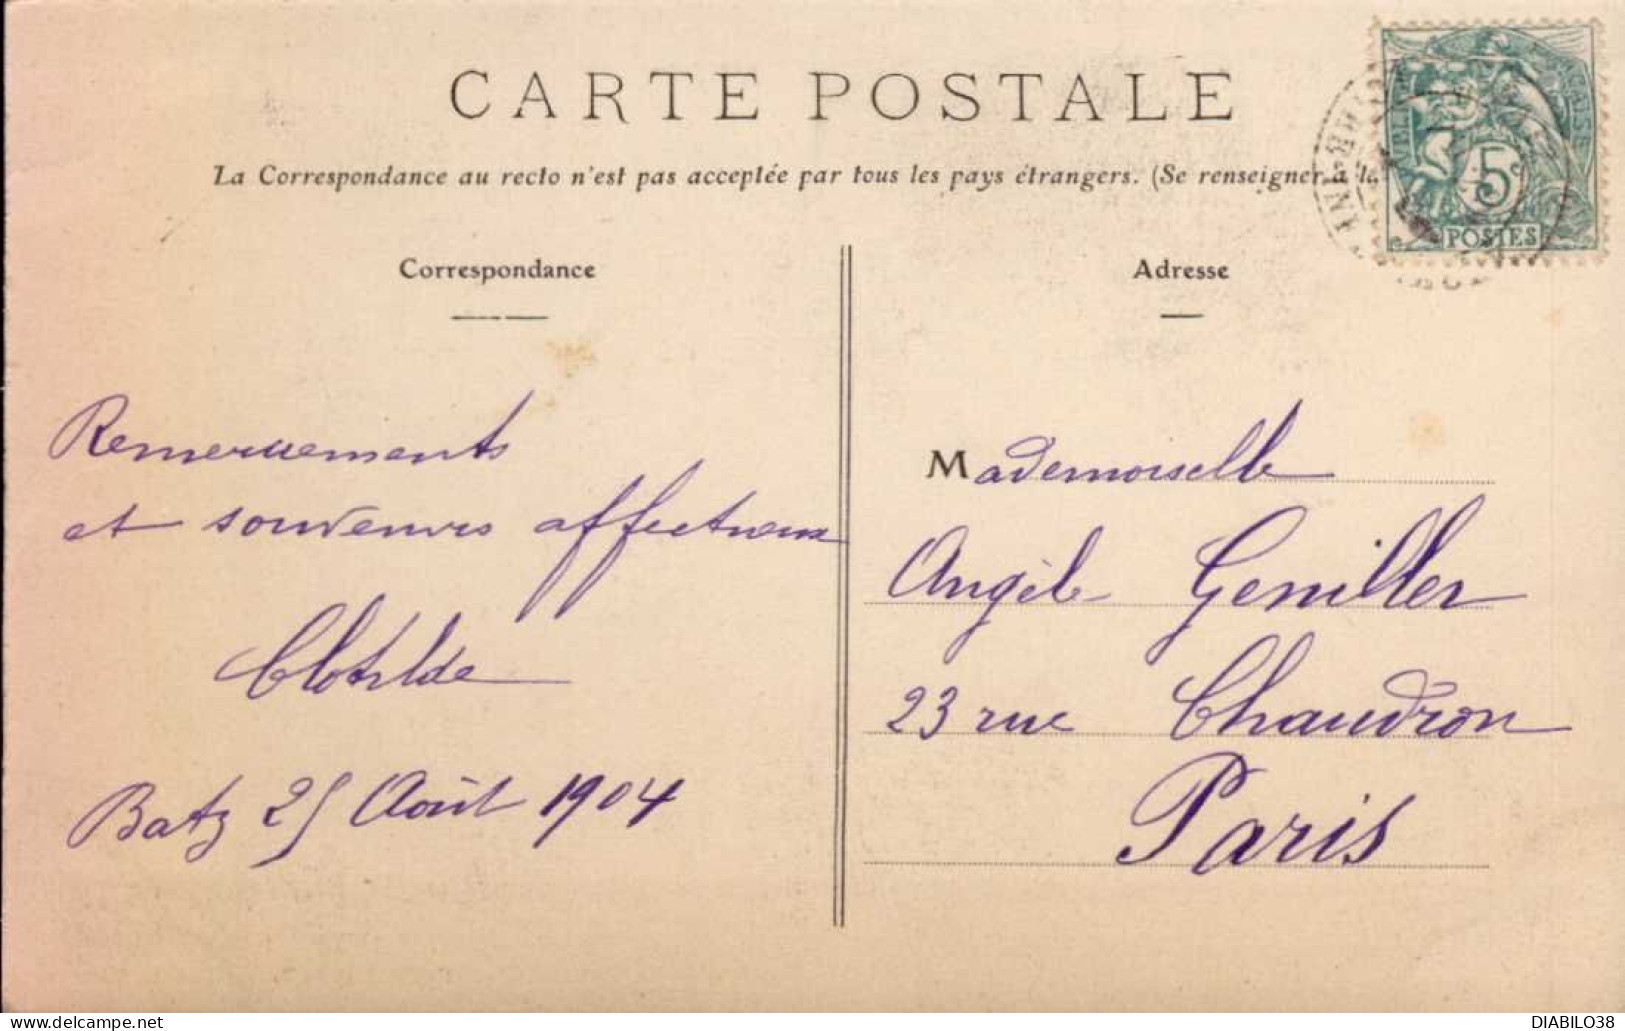 CARTE POSTALE
La Correspondance au recto n'est pas acceptée par tous les pays étrangers. (Se renseigner à la
Correspondance
Remerciements
et souvenirs affectueux
Clotilde
Batz 25 Août 1904
Adresse
Mademoiselle
Angèle Geniller
23 rue Chaudron
Paris
5c
POSTES
DIABILO38